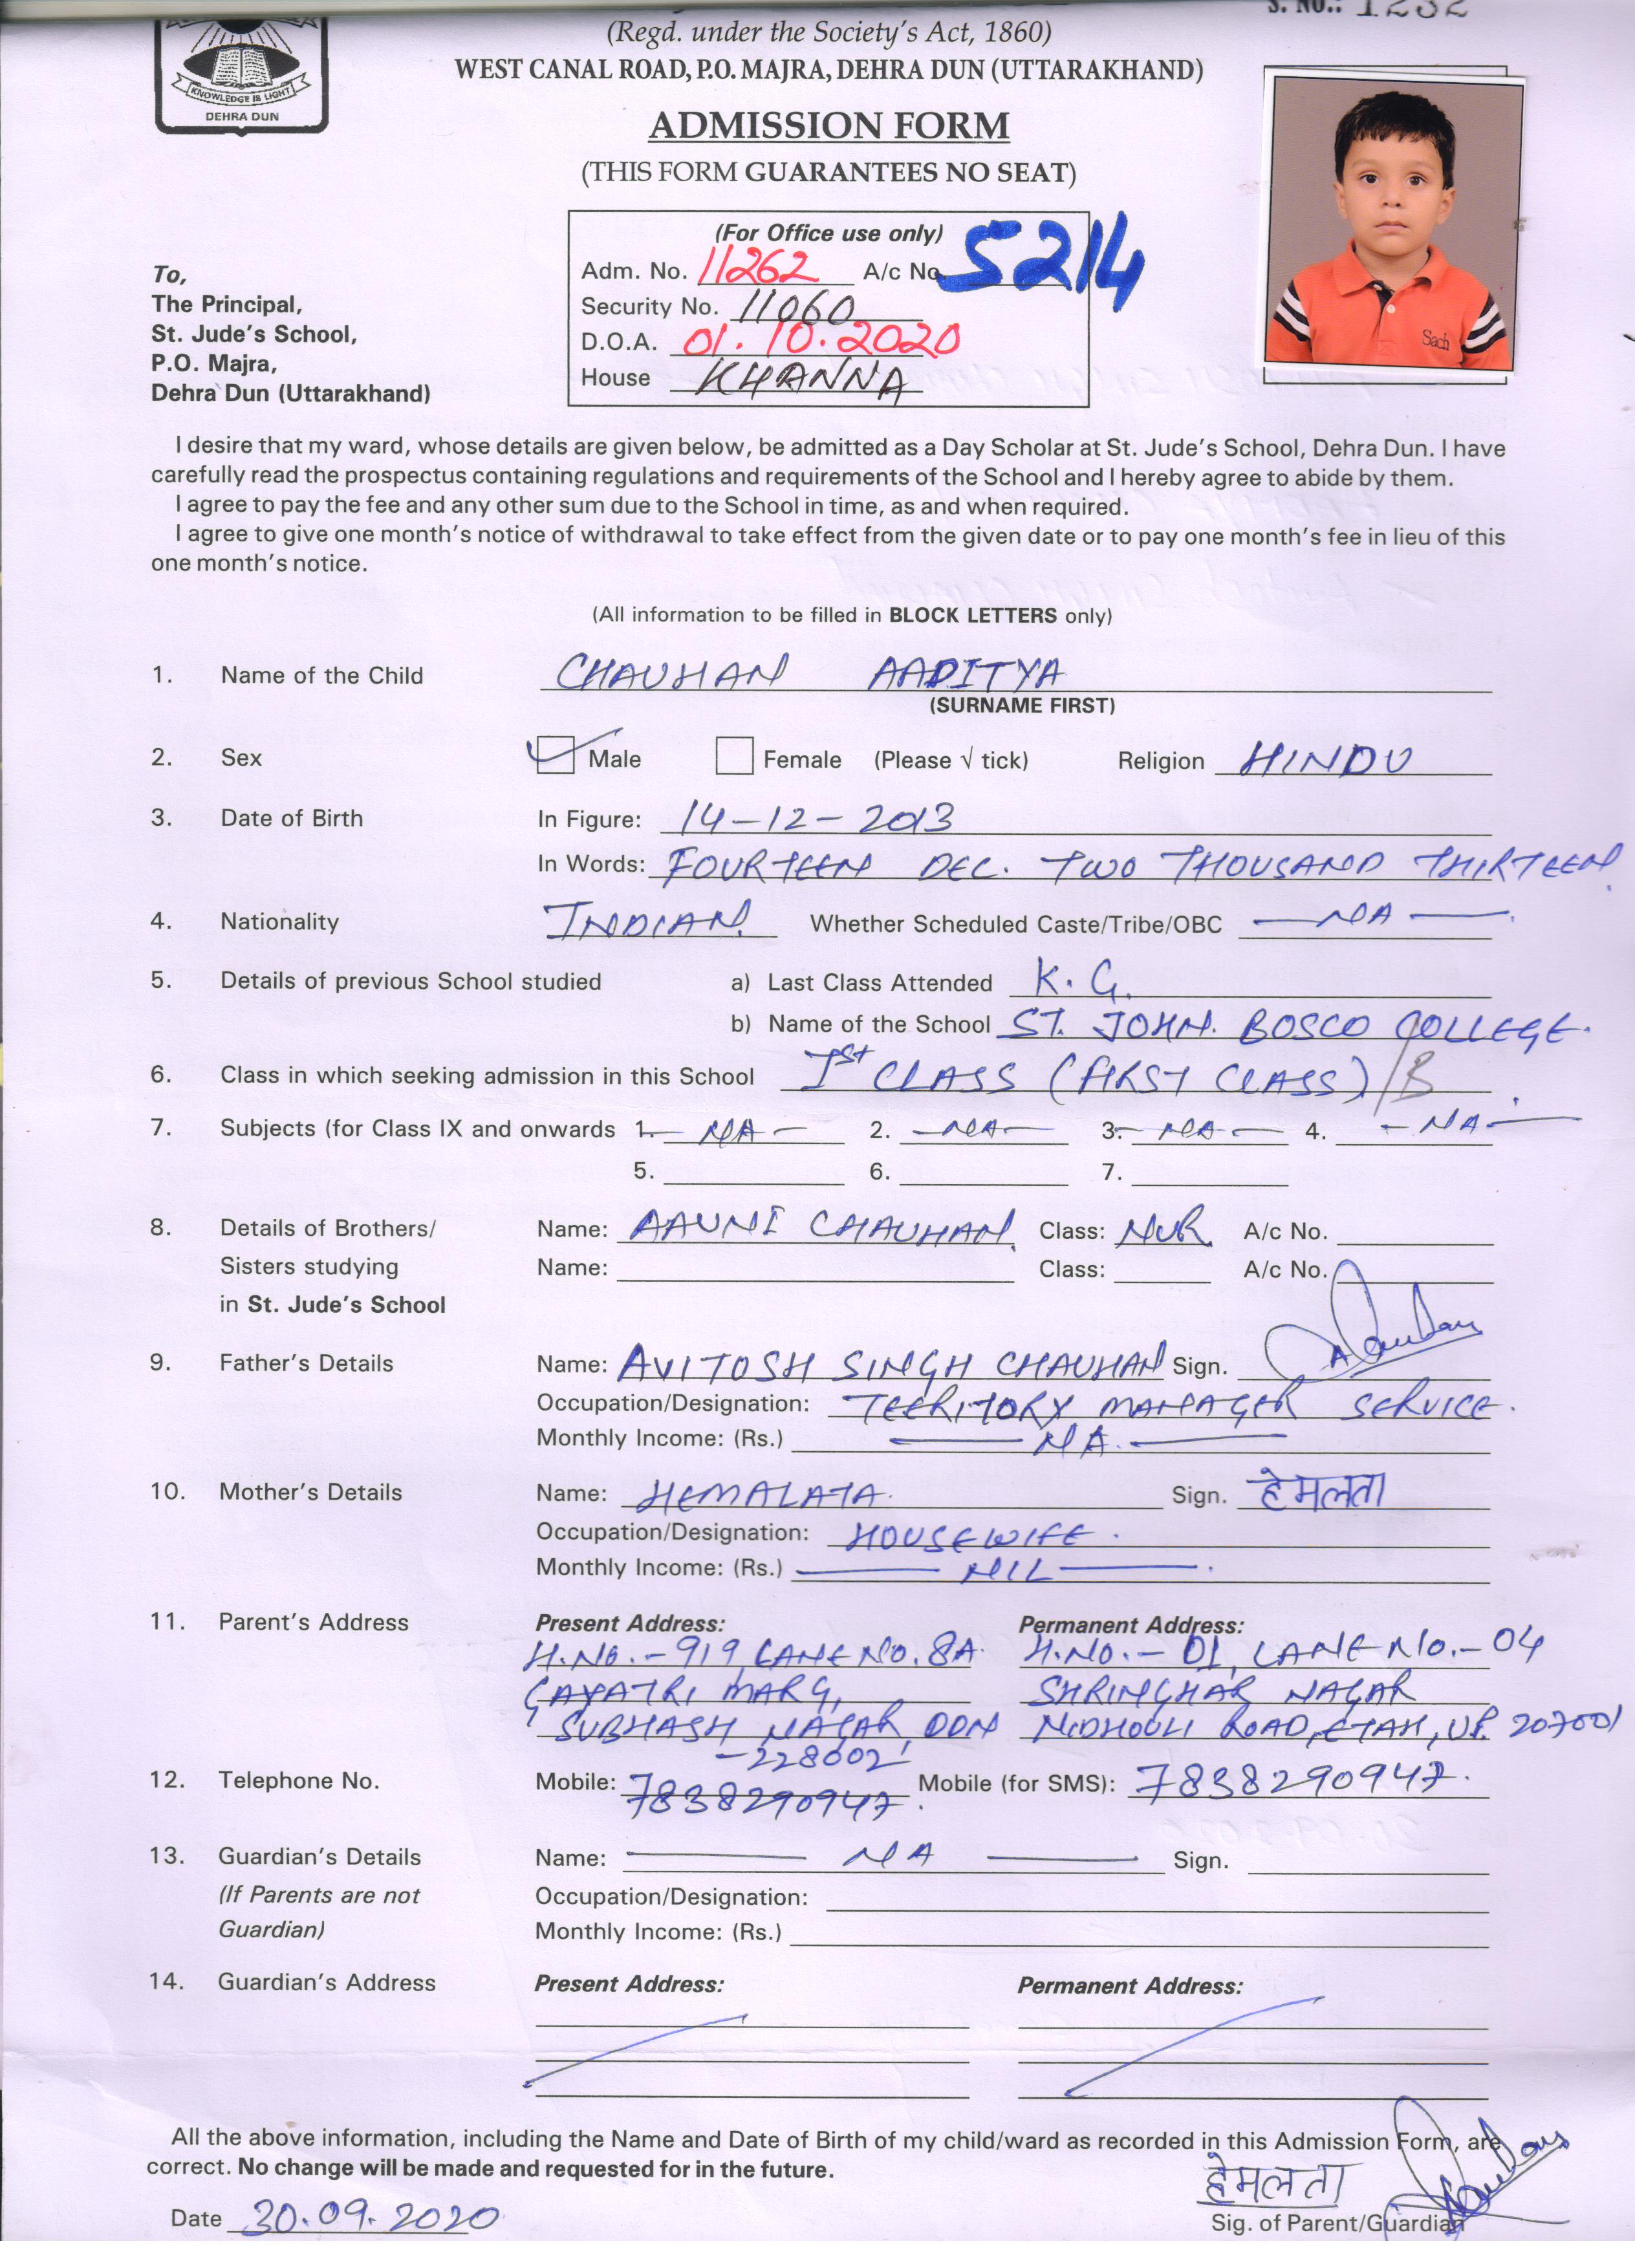 S. NO.: 1232
(Regd. under the Society's Act, 1860)
WEST CANAL ROAD, P.O. MAJRA, DEHRA DUN (UTTARAKHAND)
KNOWLEDGE IS LIGHT
DEHRA DUN
ADMISSION FORM
(THIS FORM GUARANTEES NO SEAT)
(For Office use only)
Adm. No. 11262 A/c No. 5214
Security No. 11060
D.O.A. 01.10.2020
House KHANNA
Sach
To,
The Principal,
St. Jude's School,
P.O. Majra,
Dehra Dun (Uttarakhand)
I desire that my ward, whose details are given below, be admitted as a Day Scholar at St. Jude's School, Dehra Dun. I have
carefully read the prospectus containing regulations and requirements of the School and I hereby agree to abide by them.
I agree to pay the fee and any other sum due to the School in time, as and when required.
I agree to give one month's notice of withdrawal to take effect from the given date or to pay one month's fee in lieu of this
one month's notice.
(All information to be filled in BLOCK LETTERS only)
1. Name of the Child CHAUHAN AADITYA
(SURNAME FIRST)
2. Sex Male Female (Please √ tick) Religion HINDU
3. Date of Birth In Figure: 14-12-2013
In Words: FOURTEEN DEC. TWO THOUSAND THIRTEEN
4. Nationality INDIAN. Whether Scheduled Caste/Tribe/OBC — NA —
5. Details of previous School studied a) Last Class Attended K.G.
b) Name of the School ST. JOHN. BOSCO COLLEGE.
6. Class in which seeking admission in this School Ist CLASS (FIRST CLASS)/B
7. Subjects (for Class IX and onwards 1. — NA — 2. — NA — 3. — NA — 4. — NA —
5. 6. 7.
8. Details of Brothers/ Name: AAUNI CHAUHAN. Class: NUR A/c No.
Sisters studying Name: Class: A/c No.
in St. Jude's School
9. Father's Details Name: AVITOSH SINGH CHAUHAN Sign.
Occupation/Designation: TEERITORY MANAGER SERVICE.
Monthly Income: (Rs.) — NA. —
10. Mother's Details Name: HEMALATA. Sign. हेमलता
Occupation/Designation: HOUSEWIFE.
Monthly Income: (Rs.) — NIL —
11. Parent's Address Present Address: Permanent Address:
H.NO.-919, LANE NO.8A. H.NO.-01, LANE NO.-04
GAYATRI MARG, SHRINGHAR NAGAR
SUBHASH NAGAR, DDN NIDHOULI ROAD, ETAH, U.P. 207001
-228002
12. Telephone No. Mobile: 7838290947. Mobile (for SMS): 7838290947.
13. Guardian's Details Name: — NA — Sign.
(If Parents are not Occupation/Designation:
Guardian) Monthly Income: (Rs.)
14. Guardian's Address Present Address: Permanent Address:
All the above information, including the Name and Date of Birth of my child/ward as recorded in this Admission Form, are
correct. No change will be made and requested for in the future.
हेमलता
Date 30.09.2020
Sig. of Parent/Guardian